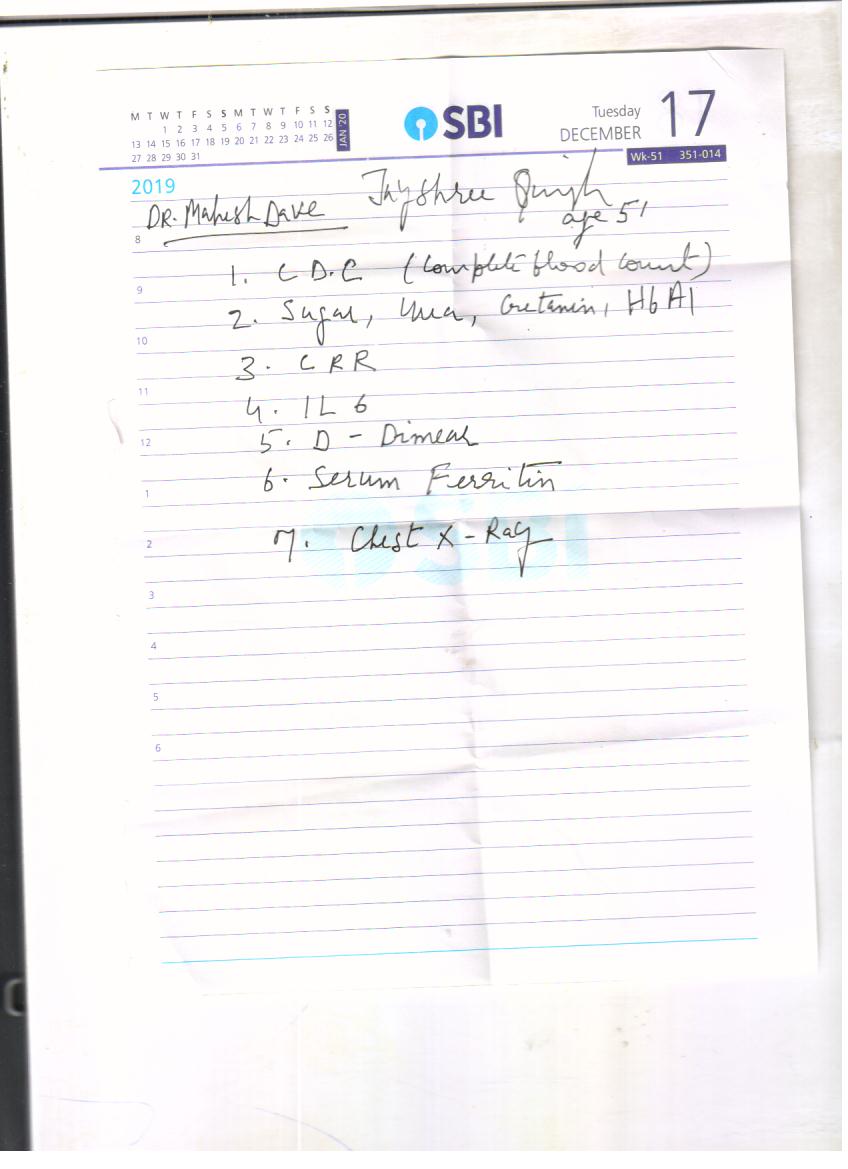 M T W T F S S M T W T F S S
1 2 3 4 5 6 7 8 9 10 11 12
13 14 15 16 17 18 19 20 21 22 23 24 25 26
27 28 29 30 31
JAN '20
SBI
Tuesday
DECEMBER
17
Wk-51 351-014
2019
DR. Mahesh Dave Jayshree Singh
age 51
8
1. C B.C (Complete blood count)
9
2. Sugar, Urea, Cretanin, Hb A1
10
3. C R R
11
4. IL 6
12
5. D - Dimear
6. Serum Ferritin
1
7. Chest X-Ray
2
SBI
3
4
5
6